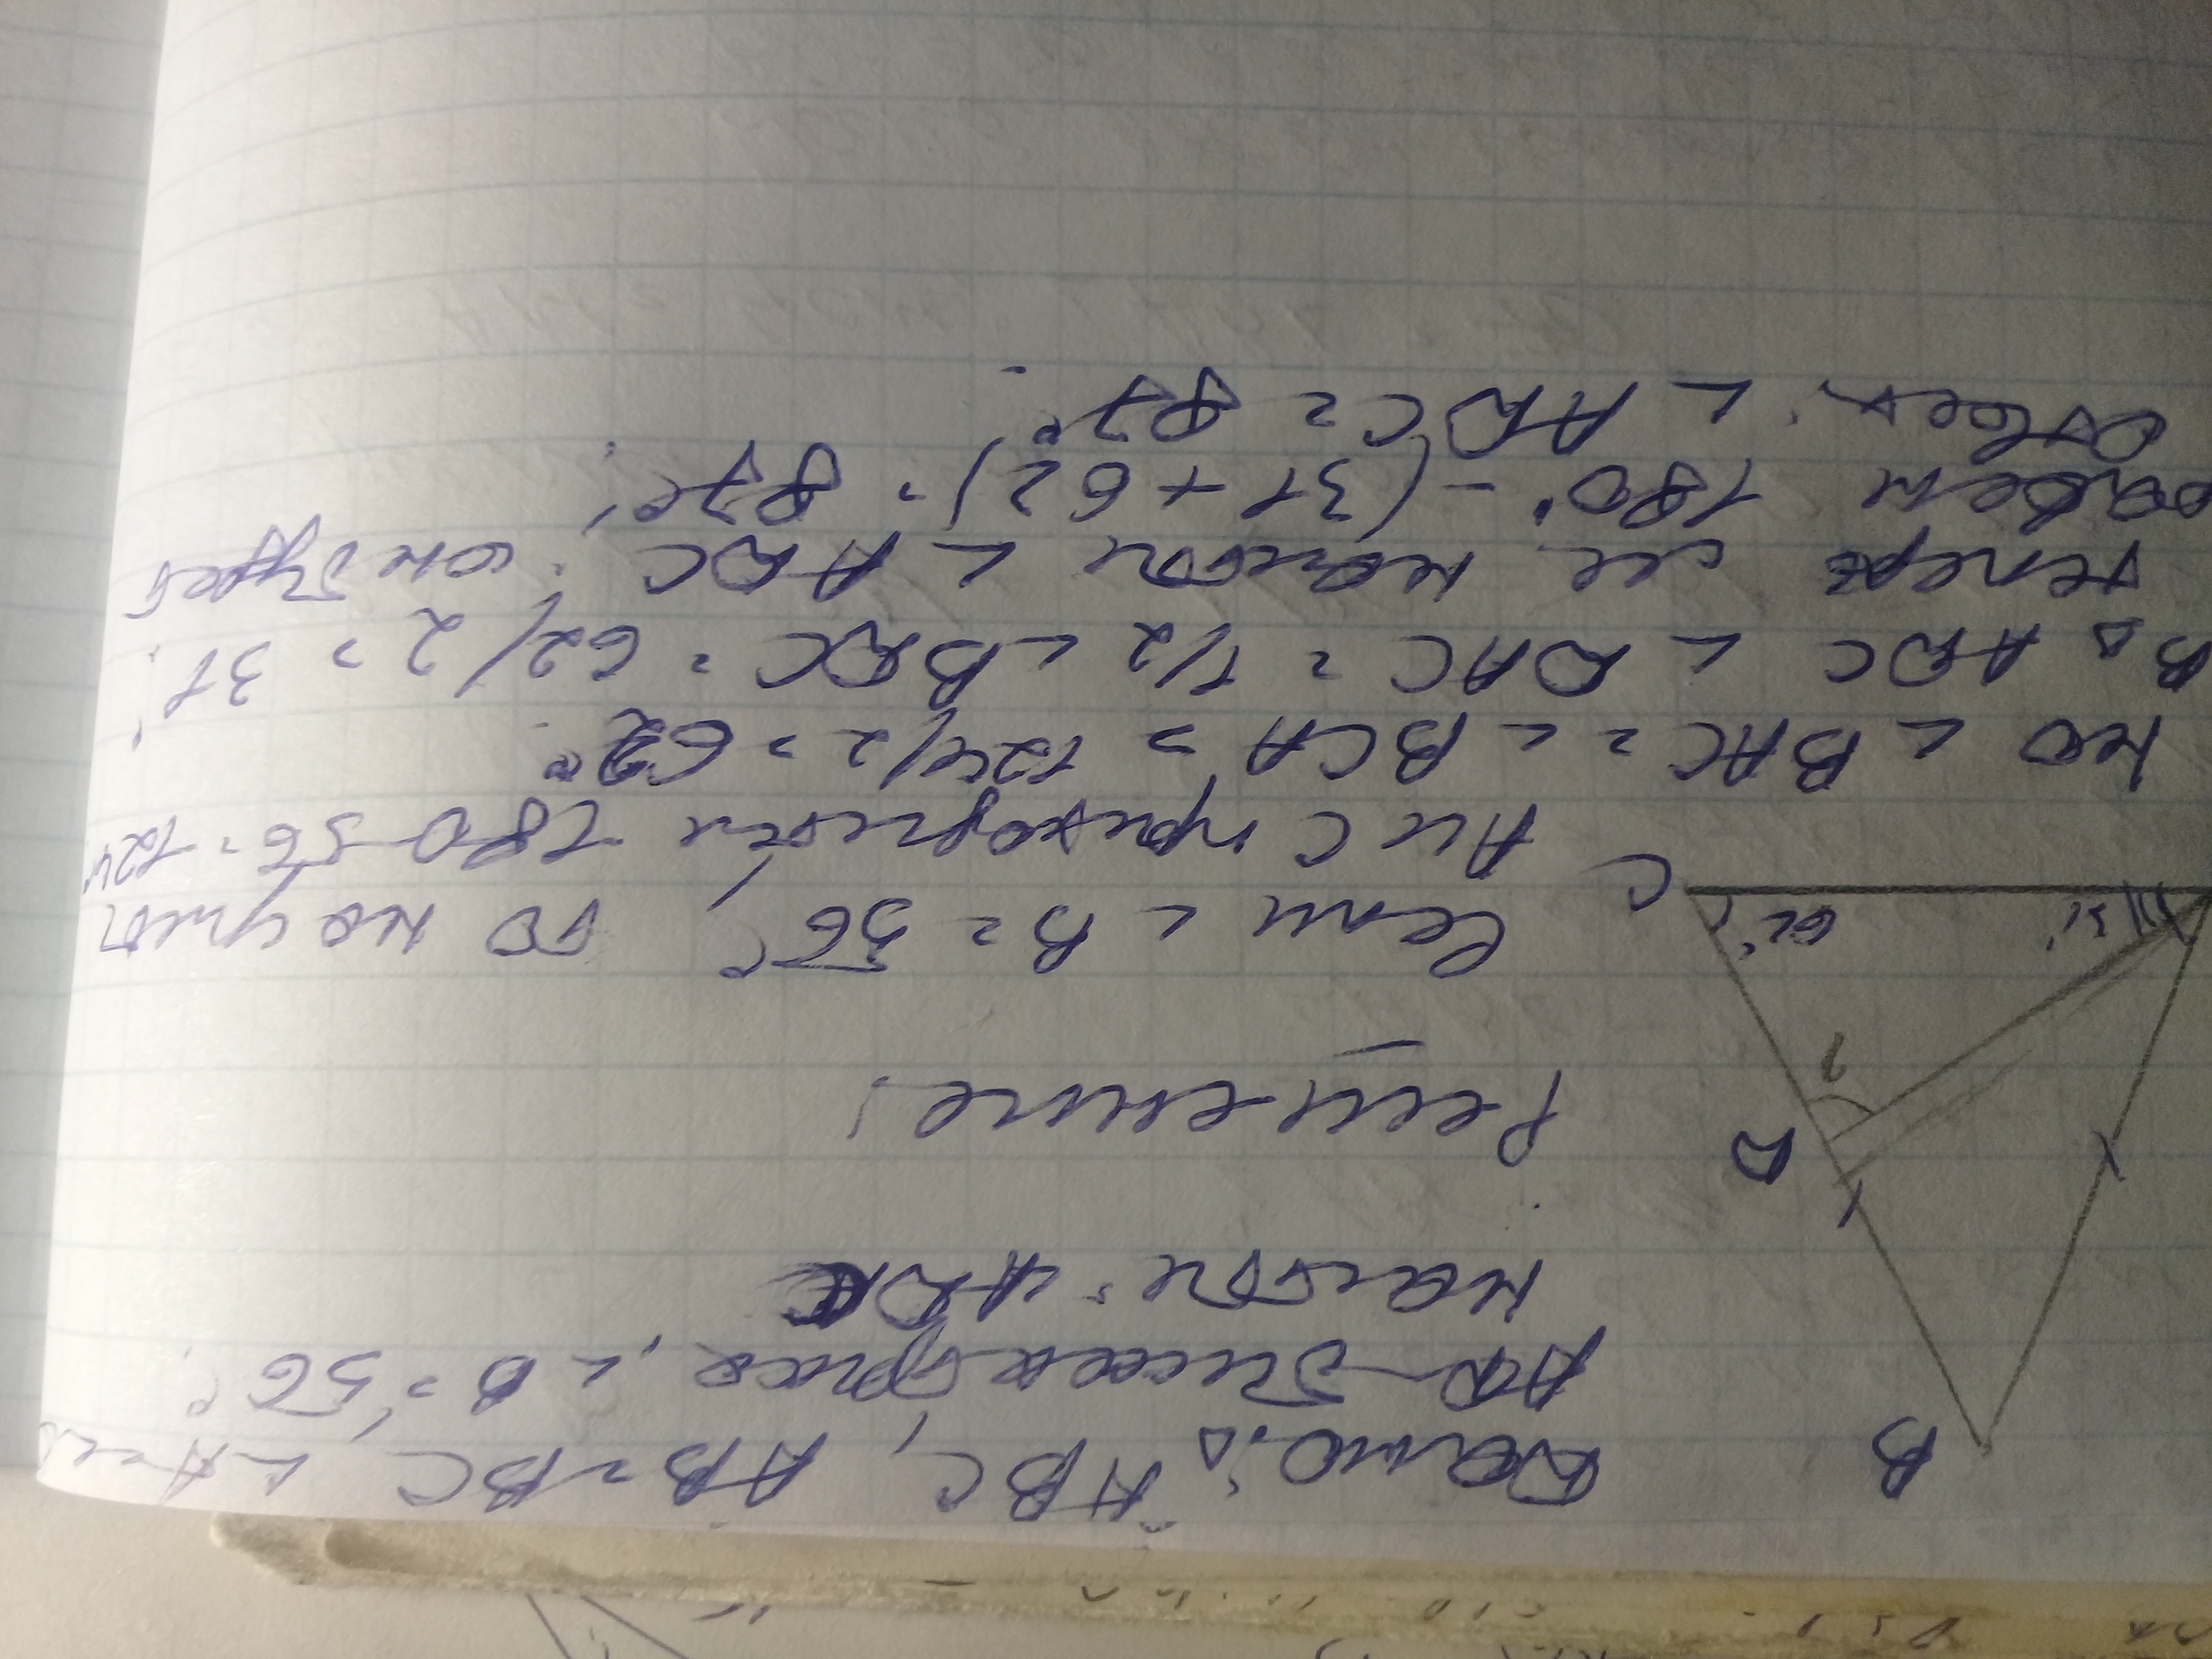 B
Дано: △ ABC, AB=BC
AD-биссектриса, ∠B=56°
найти: ADC
D
Решение:
?
31° 62°
C
Если ∠B=56°, то на угол
A и C приходится 180-56=124°
но ∠BAC=∠BCA=124/2=62°
В △ ADC ∠DAC=1/2∠BDC=62/2=31°
теперь найти ∠ADC; он будет
равен 180°-(31+62)=87°
ответ: ∠ADC=87°